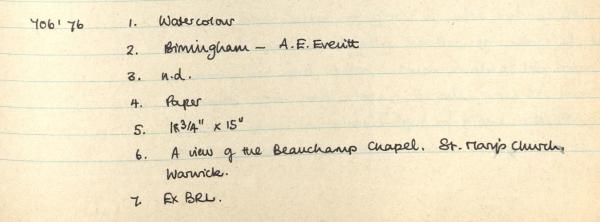 406'76 1. Watercolour
2. Birmingham - A.E. Everitt
3. n.d.
4. Paper
5. 18 3/4" x 15"
6. A view of the Beauchamp Chapel. St. Mary's Church,
Warwick.
7. Ex BRL.